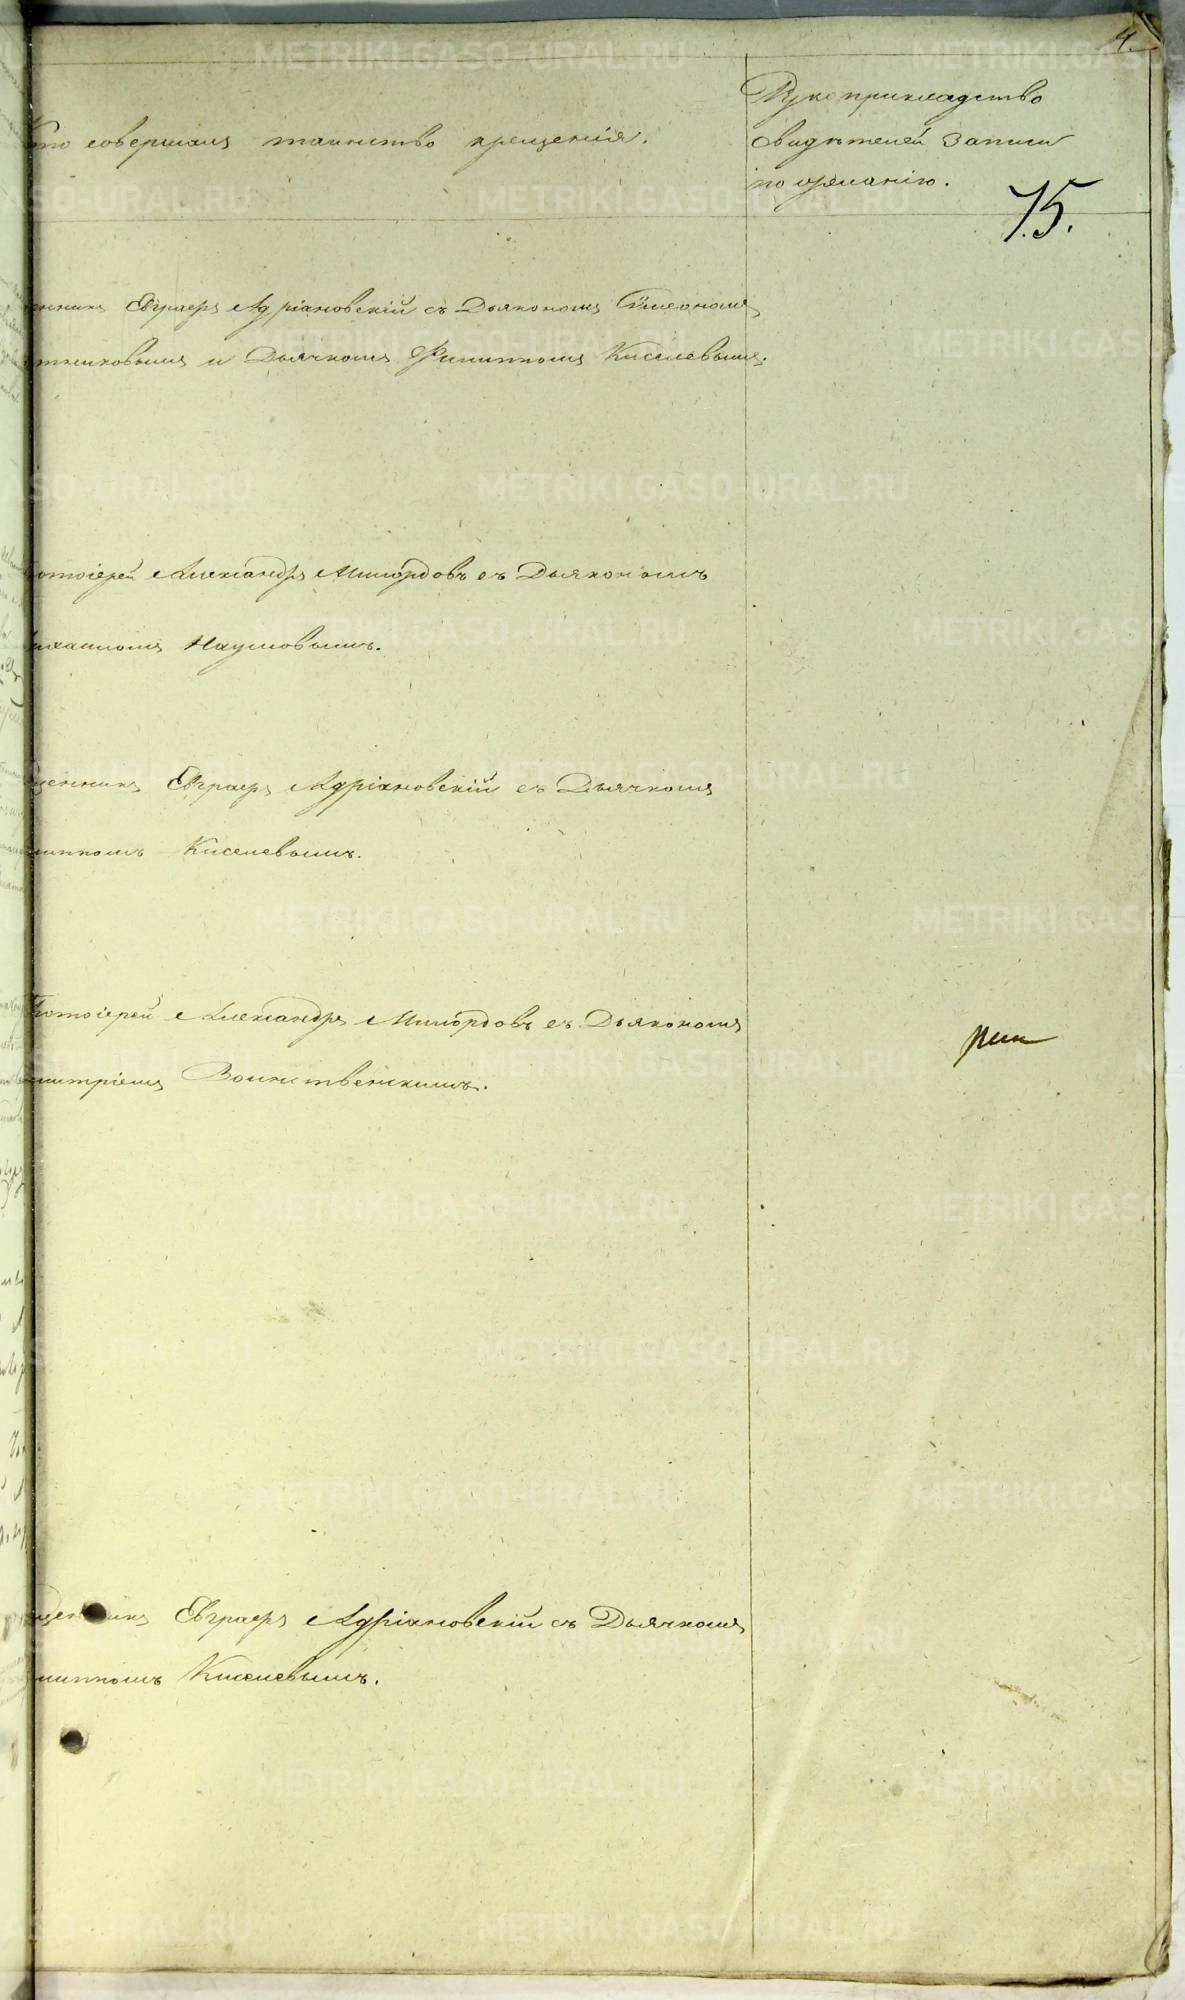 4.
Кто совершалъ таинство крещенія.
Рукоприкладство
свидѣтелей записи
по желанію.
75.
щенникъ Евграфъ Адріановскій съ Дьякономъ Сѵмеономъ
и Дьячкомъ Филиппомъ Киселевымъ.
ротоіерей Александръ Милордовъ съ Дьякономъ
ихаиломъ Наумовымъ.
щенникъ Евграфъ Адріановскій съ Дьячкомъ
липпомъ Киселевымъ.
Протоіерей Александръ Милордовъ съ Дьякономъ
митріемъ Воинственскимъ.
щенникъ Евграфъ Адріановскій съ Дьячкомъ
липпомъ Киселевымъ.
METRIKI.GASO-URAL.RU